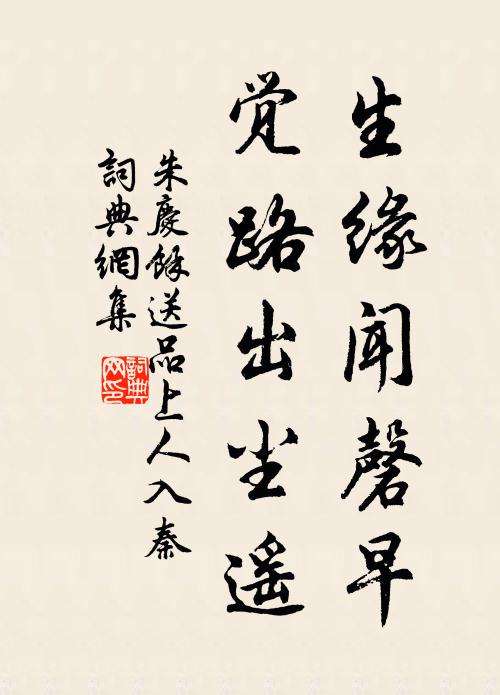 生缘闻磬早
觉路出尘遥
朱慶餘送品上人入秦
詞典網集
詞典网印